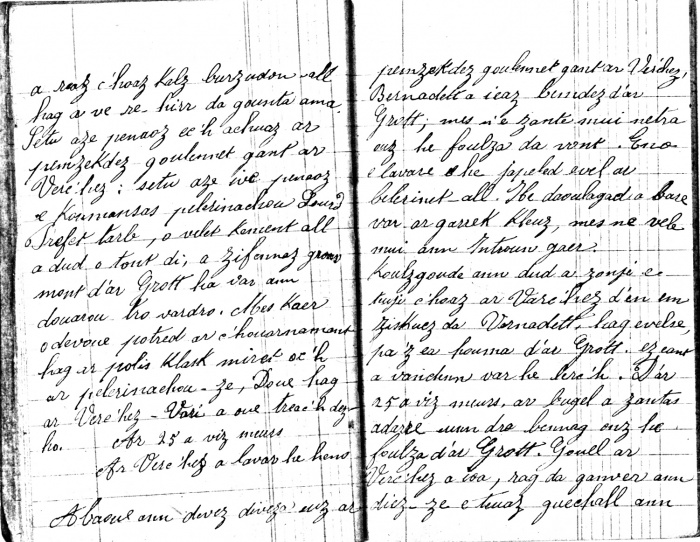 a reaz c'hoaz kalz burzudou-all
hag a ve re-hirr da gounta ama.
Setu aze penaoz ec'h achuaz ar
pemzekdez goulennet gant ar
Verc'hez; setu aze ive penaoz
e koumansas pelerinachou Lourd
Prefet Tarb, o velet kement all
a dud o tont di, a zifennez
mont d'ar Grott ha var ann
douarou tro vardro. Mes kaer
o devoue potred ar c'houarnamant
hag ar polis klask miret oc'h
ar pelerinachou-ze, Doue hag
ar Verc'hez-Vari a oue treac'h dez-
ho. Ar 25 a viz meurs
Ar Verc'hez a lavar he heno
Abaoue ann devez diveza euz ar
pemzekdez goulennet gant ar Verc'hez,
Bernadett a ieaz bemdez d'ar
Grott; mes n'e zante mui netra
euz he foulza da vont. Eno
e lavare he japeled evel ar
belerinet-all. He daoulagad a bare
var ar garrek kleuz, mes ne vele
mui ann Introun gaer.
Koulzgoude ann dud a zonje e
tuje c'hoaz ar Varc'hez d'en em
ziskuez da Vernadett, hag evelse
pa'z ea houma d'ar Grott, ez eant
a vandenn var he lerc'h. D'ar
25 a viz meurs, ar bugel a zantas
adarre eunn dra bennag euz he
foulza d'ar Grott. Gouel ar
Verc'hez a ioa, rag da ganver ann
deiz-ze e teuaz guechall ann